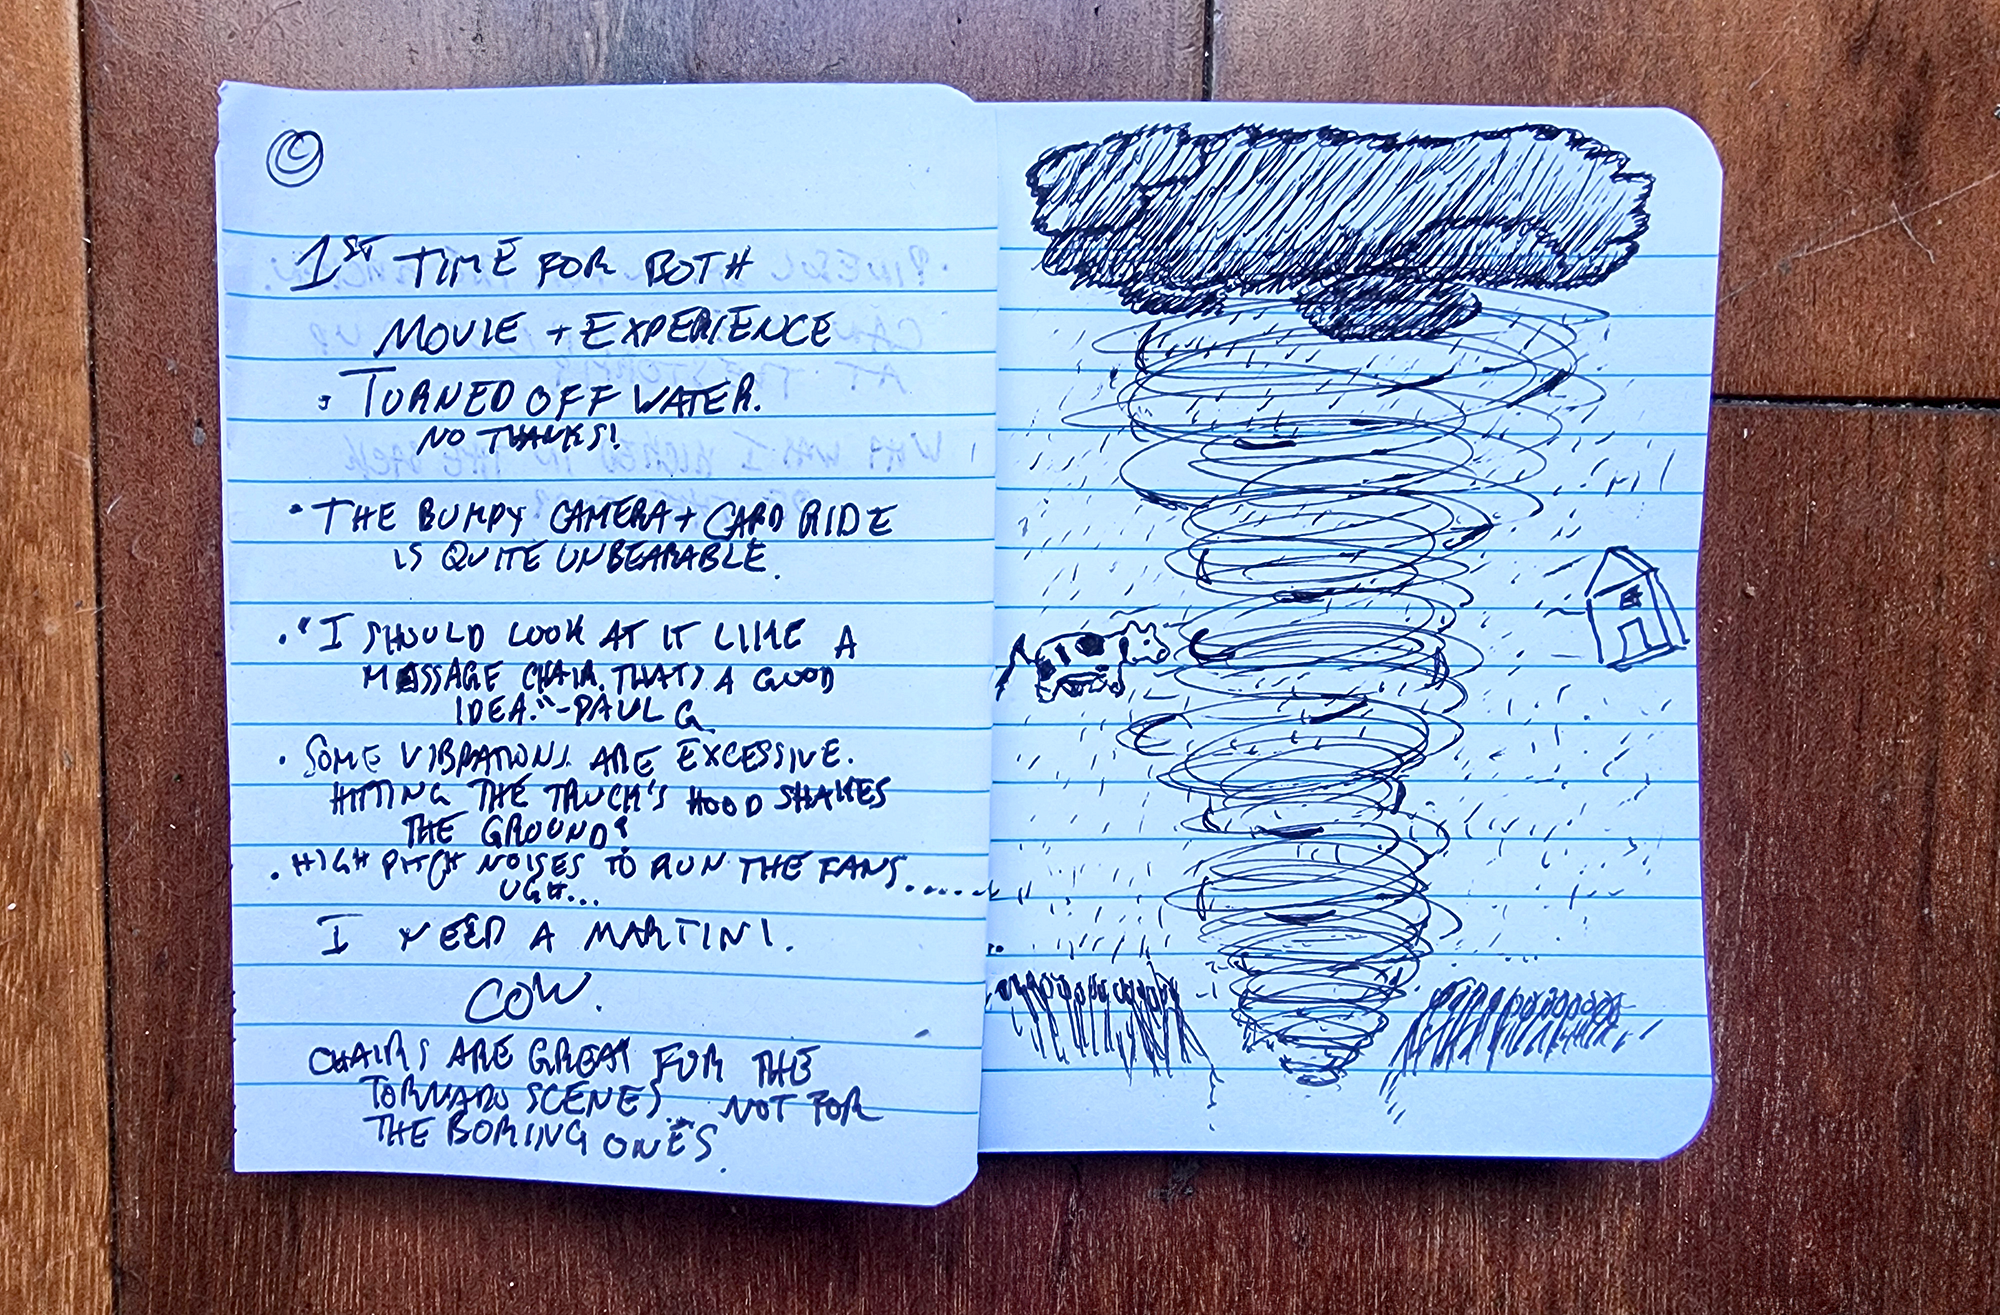 1ST TIME FOR BOTH
MOVIE + EXPERIENCE
• TURNED OFF WATER.
NO THANKS!
• THE BUMPY CAMERA + CARD RIDE
IS QUITE UNBEARABLE.
• "I SHOULD LOOK AT IT LIKE A
MASSAGE CHAIR. THATS A GOOD
IDEA." - PAUL G
• SOME VIBRATIONS ARE EXCESSIVE.
HITTING THE TRUCK'S HOOD SHAKES
THE GROUND?
• HIGH PITCH NOISES TO RUN THE FANS......
UGH...
I NEED A MARTINI.
COW.
CHAIRS ARE GREAT FOR THE
TORNADO SCENES... NOT FOR
THE BORING ONES.